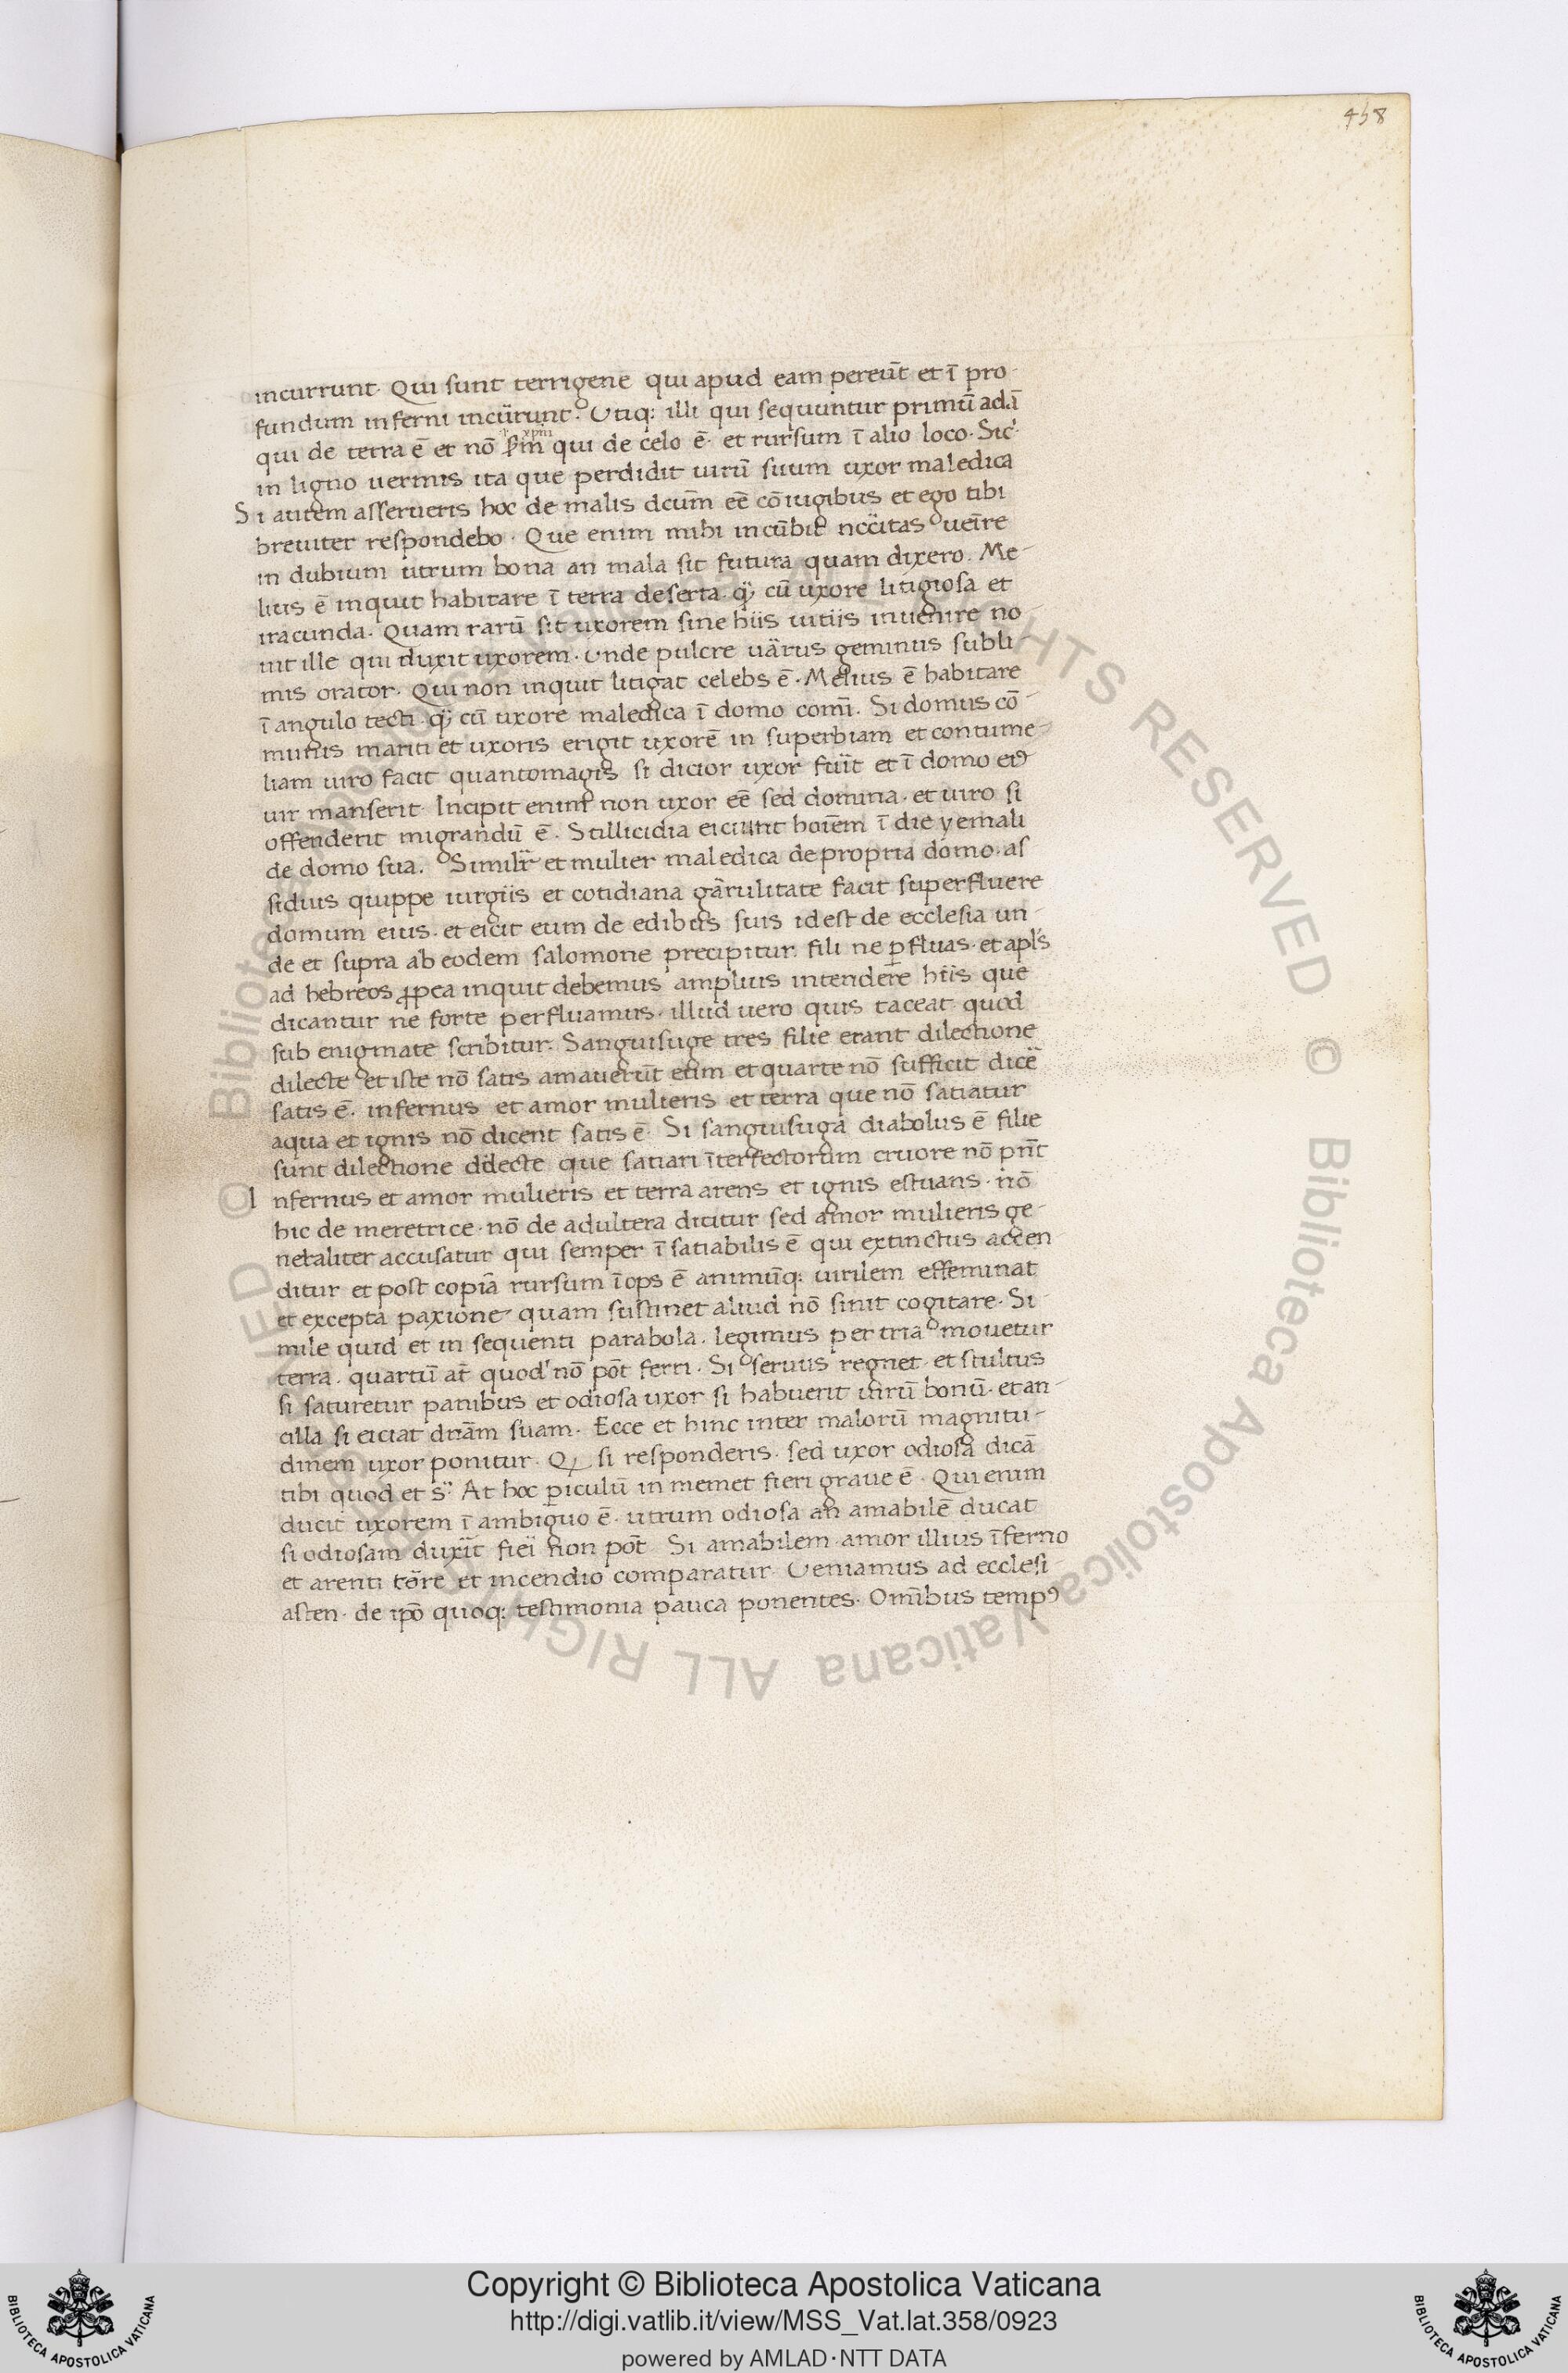 458
incurrunt. Qui sunt terrigene qui apud eam pereūt et ī pro-
fundum inferni incurrunt. Utiq; illi qui sequuntur primū adā
qui de terra ē et nō qui de celo ē. et rursum ī alio loco. Sic̄
in ligno uermis ita que perdidit uirū suum uxor maledica
Si autem asserueris hoc de malis dcūm eē cōiugibus et ego tibi
breuiter respondebo. Que enim mihi incūbit nccītas ueīre
in dubium utrum bona an mala sit futura quam dixero. Me-
lius ē inquit habitare ī terra deserta. q̈ cū uxore litigiosa et
iracunda. Quam rarū sit uxorem sine hiis uitiis inuenire no-
uit ille qui duxit uxorem. Unde pulcre uārus geminus subli-
mis orator. Qui non inquit litigat celebs ē. Melius ē habitare
ī angulo tecti. q̈ cū uxore maledica ī domo comī. Si domus cō-
munis mariti et uxoris erigit uxorē in superbiam et contume-
liam uiro facit quantomagis si dicior uxor fūit et ī domo eiꝰ
uir manserit. Incipit enim non uxor eē sed domina. et uiro si
offenderit migrandū ē. Stillicidia eiciunt hoīem ī die yemali
de domo sua. Similr̄ et mulier maledica de propria domo. as
siduis quippe iurgiis et cotidiana gārulitate facit superfluere
domum eius. et eicit eum de edibus suis idest de ecclesia un-
de et supra ab eodem salomone precipitur. fili ne ꝑfluas. et apl's
ad hebreos ꝓpea inquit debemus amplius intendere hiis que
dicantur ne forte perfluamus. illud uero quis taceat quod
sub enigmate scribitur. Sanguisuge tres filie erant dilectione
dilecte et iste nō satis amauerūt eum et quarte nō sufficit dicē
satis ē. infernus et amor mulieris et terra que nō satiatur
aqua et ignis nō dicent satis ē. Si sanguisuga diabolus ē filie
sunt dilectione dilecte que satiari īterfectorum cruore nō pnt̄
Infernus et amor mulieris et terra arens et ignis estuans. nō
hic de meretrice. nō de adultera dicitur sed amor mulieris ge-
neraliter accusatur qui semper ī satiabilis ē qui extinctus accen-
ditur et post copiā rursum īops ē animūq; uirilem effeminat
et excepta paxione quam sustinet aliud nō sinit cogitare. Si-
mile quid et in sequenti parabola. legimus per tria mouetur
terra. quartū at̄ quod nō pōt ferri. Si seruus regnet. et stultus
si saturetur panibus et odiosa uxor si habuerit uirū bonū. et an-
cilla si eiciat dn̄am suam. Ecce et hinc inter malorū magnitu-
dinem uxor ponitur. Q si responderis. sed uxor odiosa dicā
tibi quod et s̈. At hoc ꝑiculū in memet fieri graue ē. Qui enim
ducit uxorem ī ambiguo ē. utrum odiosa an amabilē ducat
si odiosam duxīt fieī non pōt. Si amabilem amor illius īferno
et arenti tōre et incendio comparatur. Ueniamus ad ecclesi-
asten. de ipō quoq; testimonia pauca ponentes. Omībus tempꝰ
© Biblioteca Apostolica Vaticana ALL RIGHTS RESERVED
Copyright © Biblioteca Apostolica Vaticana
http://digi.vatlib.it/view/MSS_Vat.lat.358/0923
powered by AMLAD·NTT DATA
BIBLIOTECA APOSTOLICA VATICANA
BIBLIOTECA APOSTOLICA VATICANA